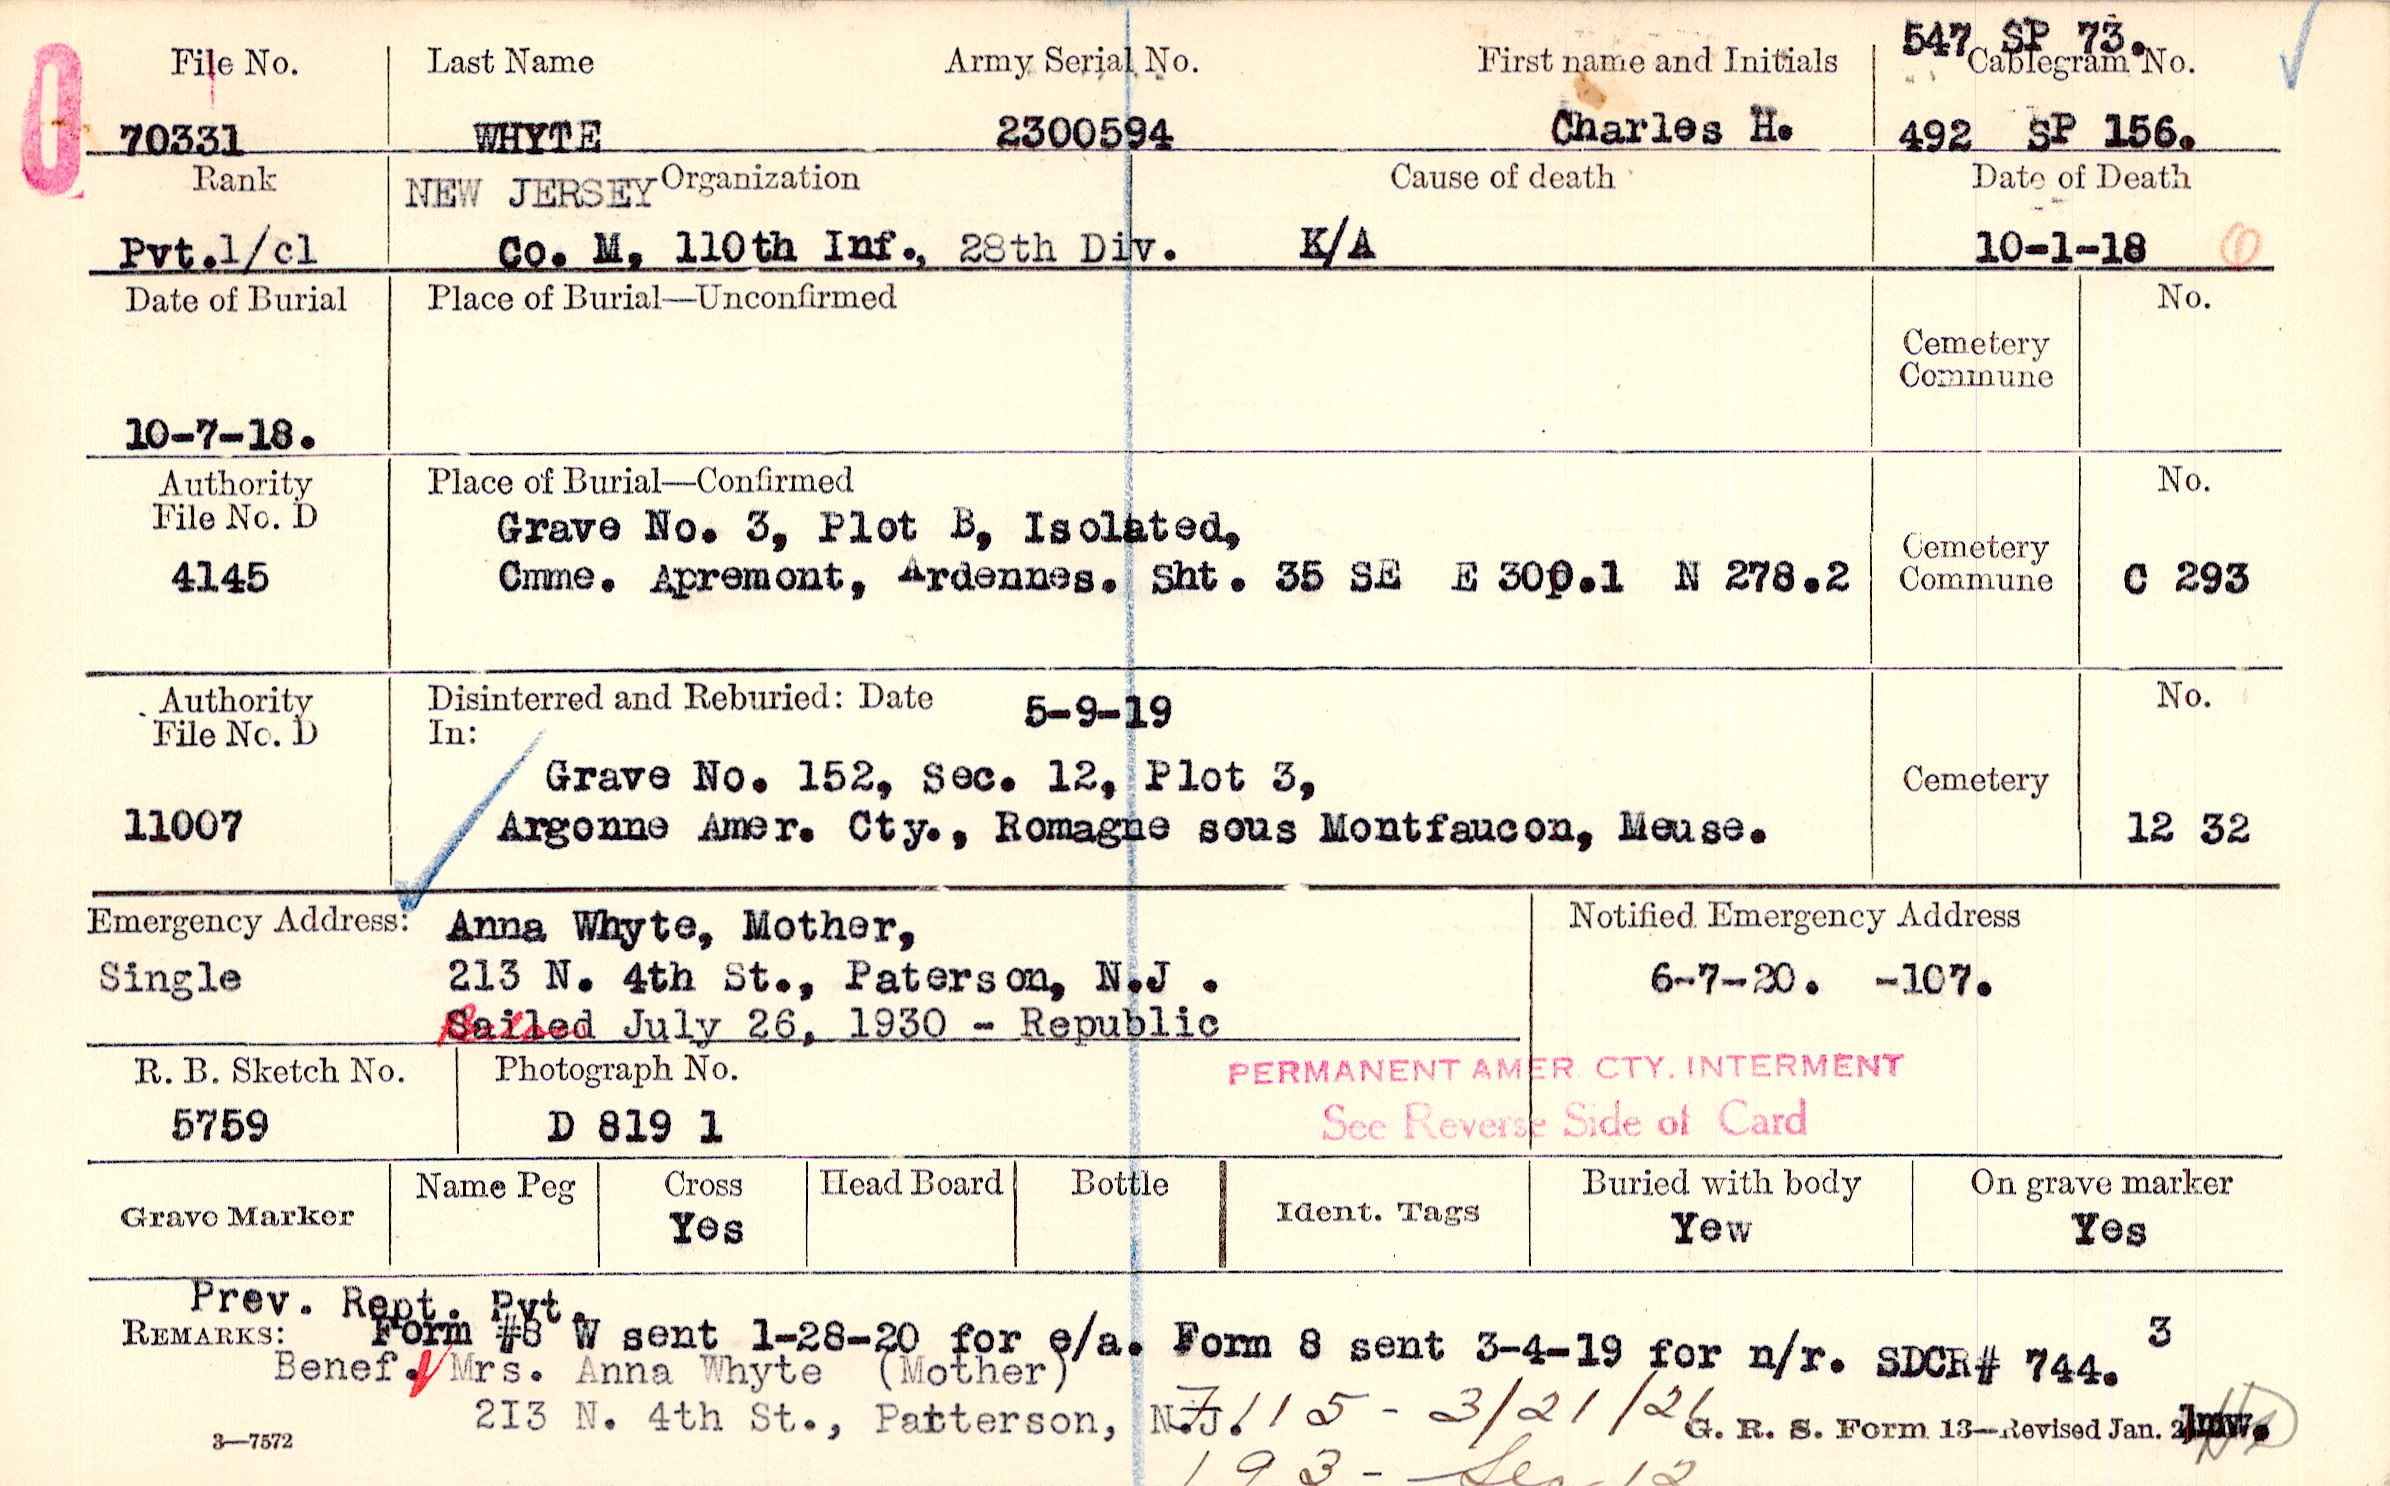 547 SP 73.
File No. Last Name Army Serial No. First name and Initials Cablegram No.
70331 WHYTE 2300594 Charles H. 492 SP 156.
Rank NEW JERSEY Organization Cause of death Date of Death
Pvt.1/cl Co. M, 110th Inf., 28th Div. K/A 10-1-18
Date of Burial Place of Burial—Unconfirmed No.
Cemetery
Commune
10-7-18.
Authority Place of Burial—Confirmed No.
File No. D
Grave No. 3, Plot B, Isolated,
Cemetery
4145 Cmne. Apremont, Ardennes. Sht. 35 SE E 300.1 N 278.2 Commune C 293
Authority Disinterred and Reburied: Date 5-9-19 No.
File No. D In:
Grave No. 152, Sec. 12, Plot 3, Cemetery
11007 Argonne Amer. Cty., Romagne sous Montfaucon, Meuse. 12 32
Emergency Address: Anna Whyte, Mother, Notified Emergency Address
Single 213 N. 4th St., Paterson, N.J . 6-7-20. -107.
Sailed July 26, 1930 - Republic
R. B. Sketch No. Photograph No. PERMANENT AMER. CTY. INTERMENT
5759 D 819 1 See Reverse Side of Card
Grave Marker Name Peg Cross Head Board Bottle Ident. Tags Buried with body On grave marker
Yes Yew Yes
Prev. Rept. Pvt.
REMARKS: Form #8 W sent 1-28-20 for e/a. Form 8 sent 3-4-19 for n/r. SDCR# 744. 3
Benef. Mrs. Anna Whyte (Mother)
213 N. 4th St., Patterson, N.J. 115 - 3/21/21
3—7572 G. R. S. Form 13—Revised Jan. 2 lmw.
193 - Sec 12